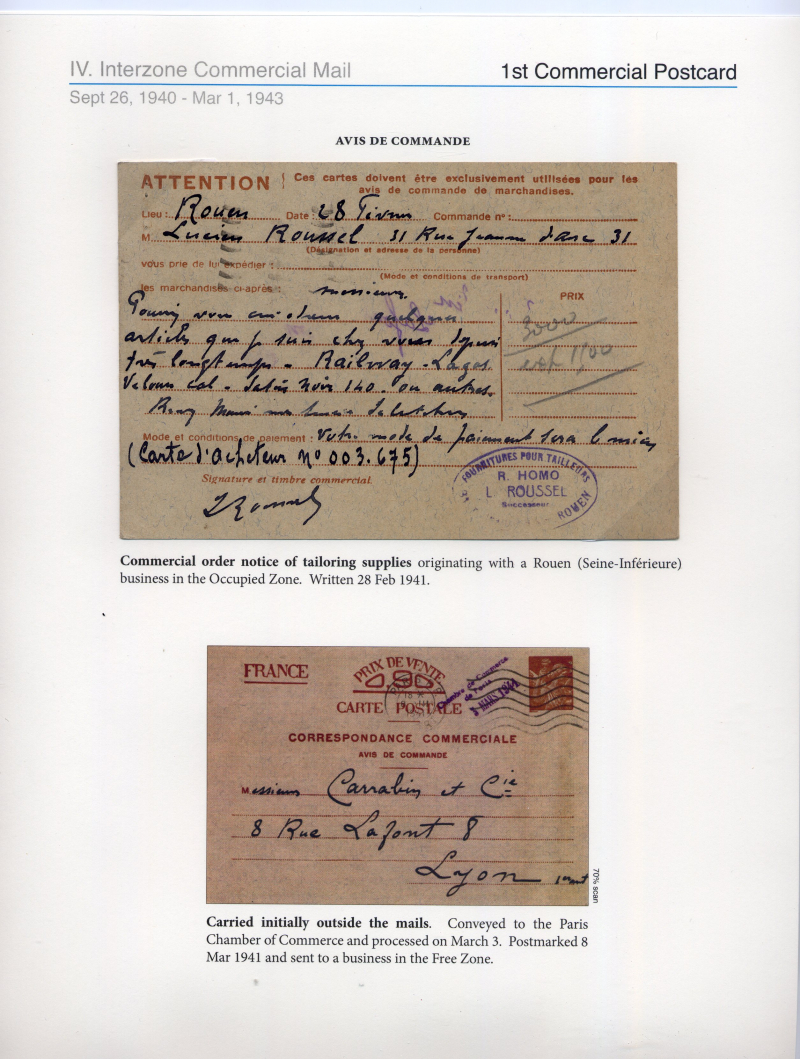 IV. Interzone Commercial Mail
1st Commercial Postcard
Sept 26, 1940 - Mar 1, 1943
AVIS DE COMMANDE
ATTENTION
Ces cartes doivent être exclusivement utilisées pour les
avis de commande de marchandises.
Lieu : Rouen Date : 28 Commande n° :
M. Lucien Roussel 31 Rue Jeanne d'arc 31
(Désignation et adresse de la personne)
vous prie de lui expédier :
(Mode et conditions de transport)
les marchandises ci-après : messieurs,
PRIX
quelques
3000
articles que je suis chez vous depuis
très longtemps - Railway - Lagos
1100
Velours cal - Satin Noir 140 - ou autres.
Mode et conditions de paiement : Votre mode de paiement sera le mien
(Carte d'acheteur n° 003.675)
Signature et timbre commercial
LRoussel
FOURNITURES POUR TAILLEURS
R. HOMO
L. ROUSSEL
Successeur
ROUEN
Commercial order notice of tailoring supplies originating with a Rouen (Seine-Inférieure)
business in the Occupied Zone. Written 28 Feb 1941.
FRANCE
PRIX DE VENTE
90
CARTE POSTALE
Chambre de Commerce
de Paris
3 MARS 1941
CORRESPONDANCE COMMERCIALE
AVIS DE COMMANDE
Messieurs Carrabin et Cie
8 Rue Lafont 8
Lyon
70% scan
Carried initially outside the mails. Conveyed to the Paris
Chamber of Commerce and processed on March 3. Postmarked 8
Mar 1941 and sent to a business in the Free Zone.